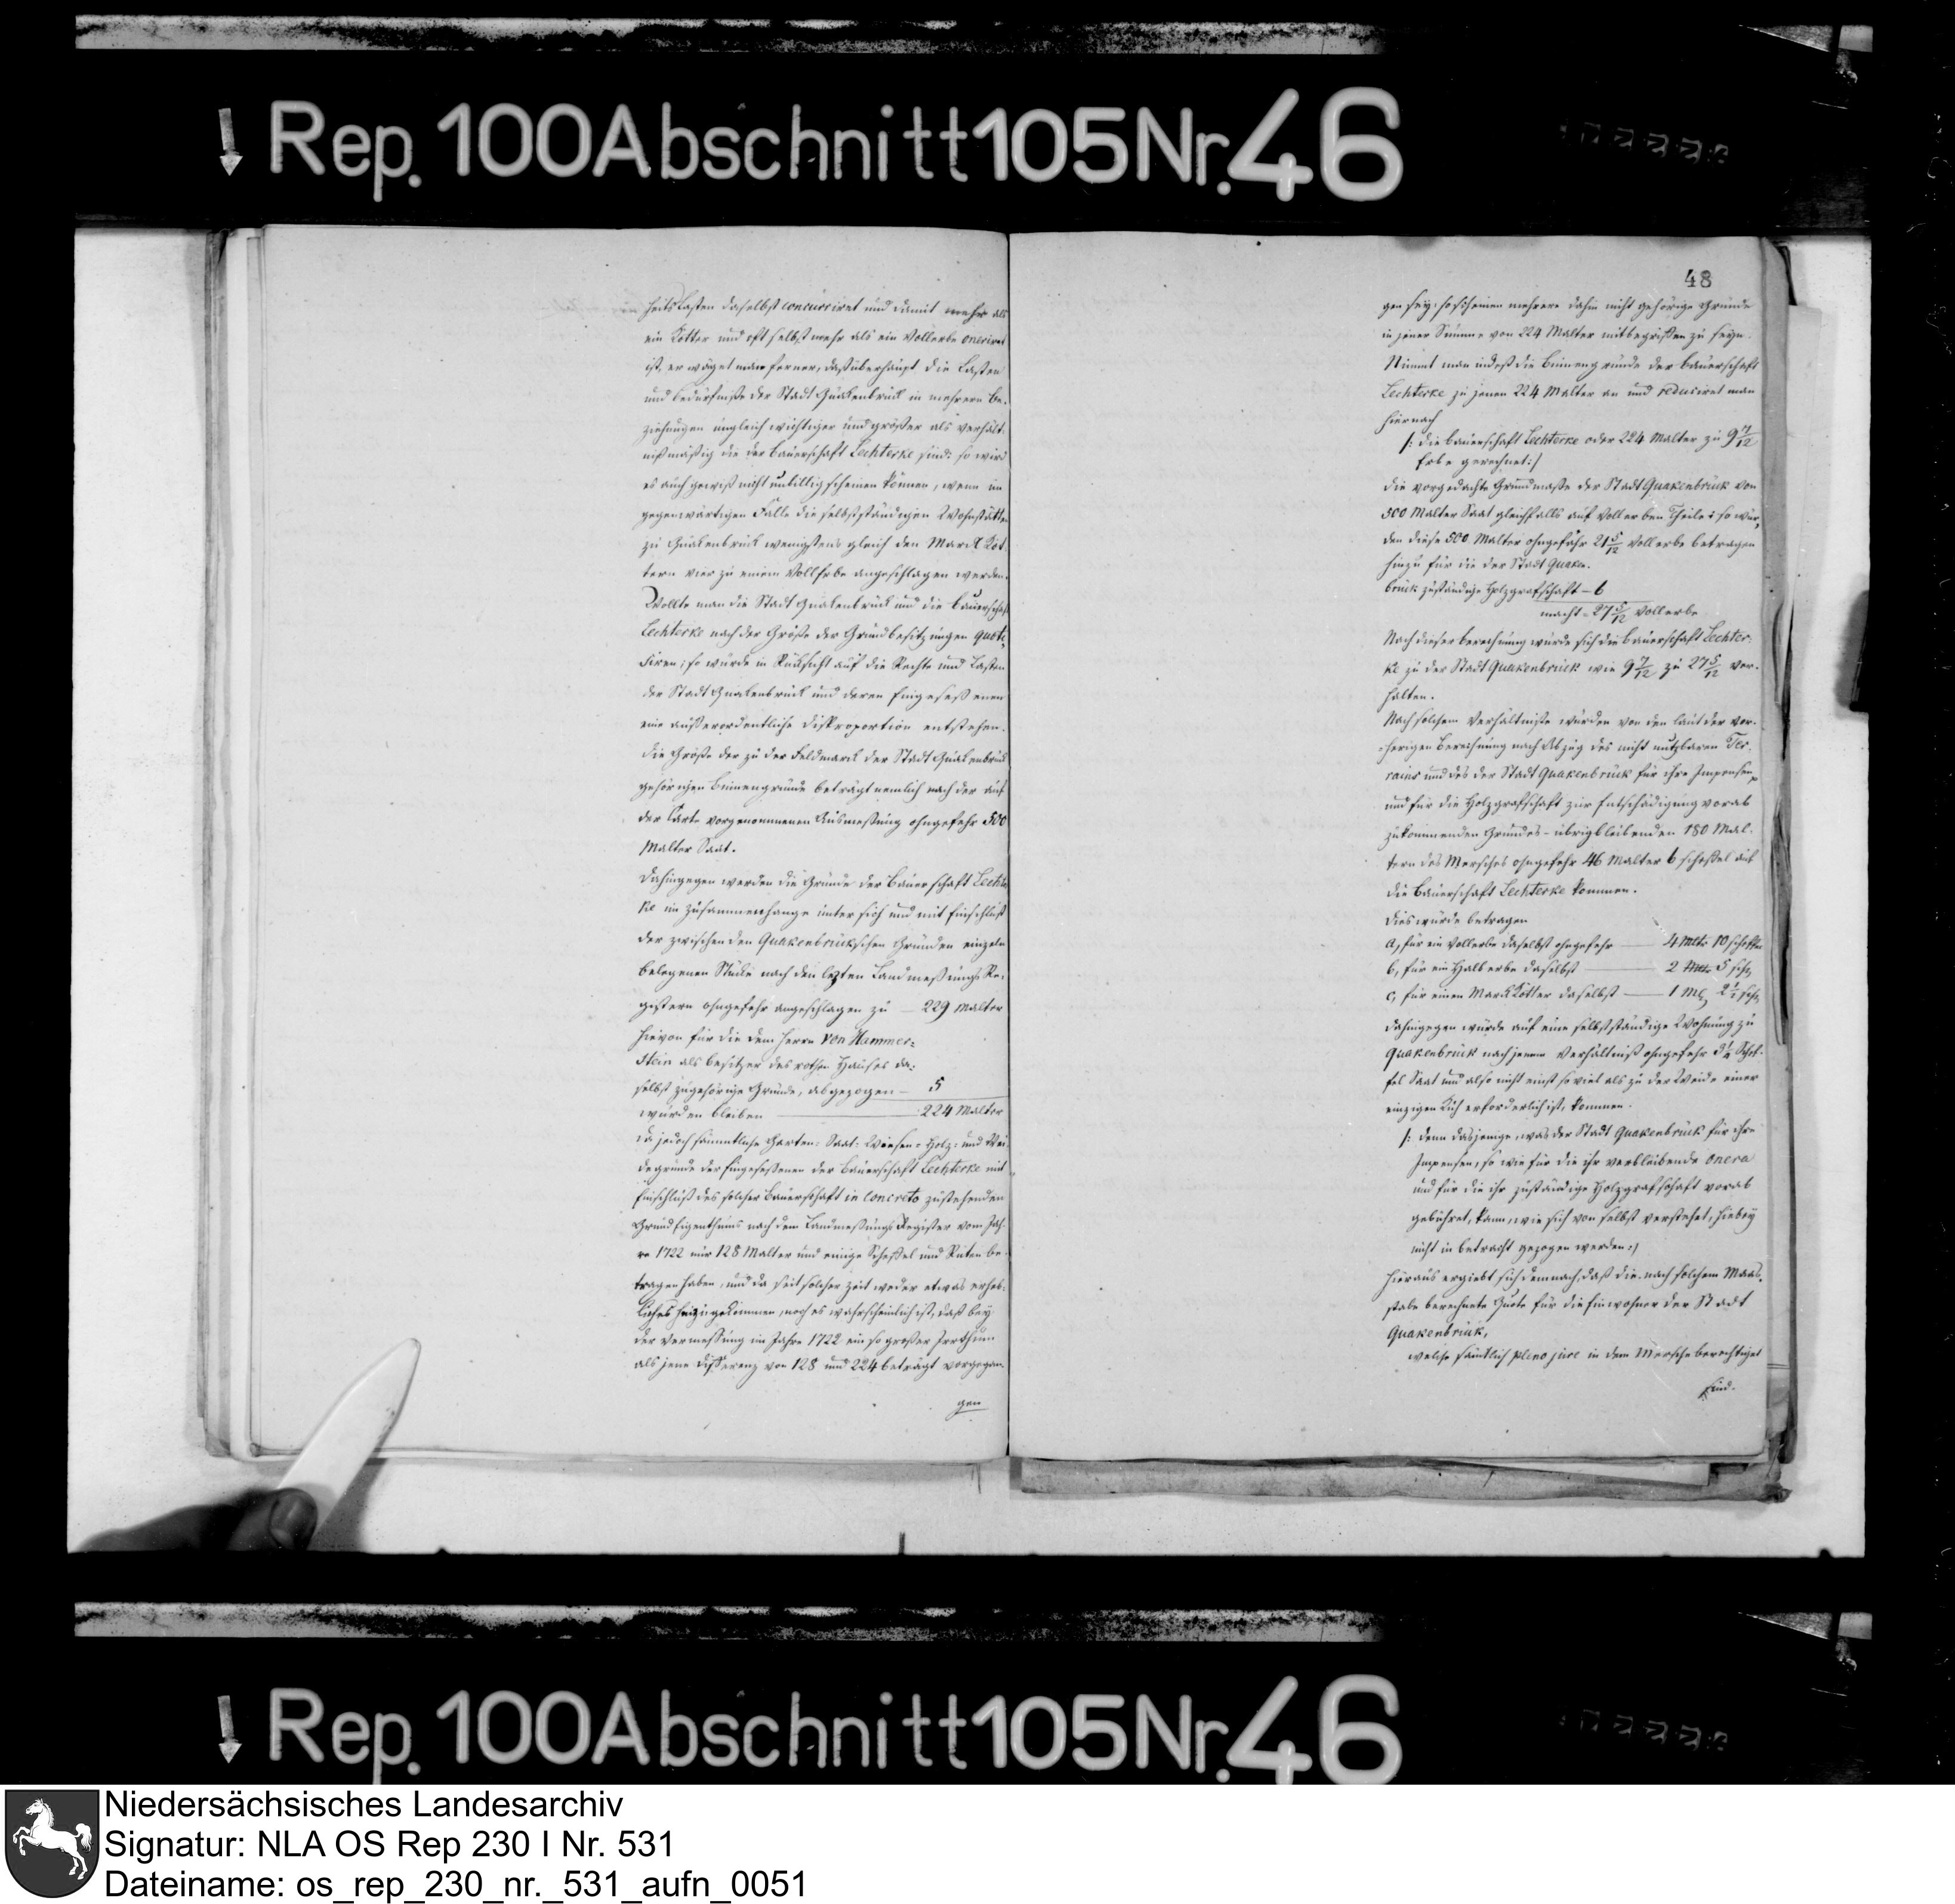 Rep. 100 Abschnitt 105 Nr. 46
heits Lasten daselbst concurriret und damit mehr als
ein Kötter und oft selbst mehr als ein Vollerbe oneriret
ist, erwäget man ferner, daß überhaupt die Lasten
und Bedürfniße der Stadt Quakenbrück in mehrern Be-
ziehungen ungleich wichtiger und größer als verhält-
nißmäßig die der Bauerschaft Lechterke sind: so wird
es auch gewiß nicht unbillig scheinen können, wenn im
gegenwärtigen Falle die selbstständigen Wohnstätten
zu Quakenbrück wenigstens gleich den Marck Köt-
tern vier zu einem Vollerbe angeschlagen werden.
Wollte man die Stadt Quakenbrück und die Bauerschaft
Lechterke nach der Größe der Grundbesitzungen quoti-
siren; so würde in Rücksicht auf die Rechte und Lasten
der Stadt Quakenbrück und deren Eingeseßenen
eine außerordentliche Disproportion entstehen.
Die Größe der zu der Feldmarck der Stadt Quakenbrück
gehörigen Binnengründe beträgt nemlich nach der auf
der Carte vorgenommenen Ausmeßung ohngefehr 500
Malter Saat.
Dahingegen werden die Gründe der Bauerschaft Lechter-
ke im Zusammenhange unter sich und mit Einschluß
der zwischen den Quakenbrückschen Gründen einzeln
belegenen Stücke nach den lezten Landmeßungs Re-
gistern ohngefehr angeschlagen zu — 229 Malter
hievon für die dem Herrn von Hammer-
stein als Besitzer des rothen Hauses da-
selbst zugehörige Gründe, abgezogen — 5
würden bleiben — 224 Malter
Da jedoch sämmtliche Garten- Saat- Wiesen- Holz- und Wei-
degründe der Eingeseßenen der Bauerschaft Lechterke mit
Einschluß des solcher Bauerschaft in concreto zustehenden
Grund Eigenthums nach dem Landmeßungs Register vom Jah-
re 1722 nur 128 Malter und einige Scheffel und Ruten be-
tragen haben, und da seit solcher Zeit weder etwas erheb-
liches hinzugekommen, noch es wahrscheinlich ist, daß bey
der Vermeßung im Jahre 1722 ein so großer Irrthum
als jene Differenz von 128 und 224 beträgt vorgegan-
gen
48
gen sey: so scheinen mehrere dahin nicht gehörige Gründe
in jener Summe von 224 Malter mitbegriffen zu seyn.
Nimmt man indeß die Binnengründe der Bauerschaft
Lechterke zu jenen 224 Malter an und reduciret man
hiernach
/: die Bauerschaft Lechterke oder 224 Malter zu 9 7/12
Erbe gerechnet :/
die vorgedachte Grundmaße der Stadt Quakenbrück von
500 Malter Saat gleichfalls auf Vollerben Theile: so wür-
den diese 500 Malter ohngefähr 21 5/12 Vollerbe betragen
hinzu für die der Stadt Quaken-
brück zuständige Holzgrafschaft — 6
macht — 27 5/12 Vollerbe
Nach dieser Berechnung würde sich die Bauerschaft Lechter-
ke zu der Stadt Quakenbrück wie 9 7/12 zu 27 5/12 ver-
halten.
Nach solchem Verhältniße würden von den laut der vor-
herigen Berechnung nach Abzug des nicht nutzbaren Ter-
rains und des der Stadt Quakenbrück für ihre Impensen
und für die Holzgrafschaft zur Entschädigung vorab
zukommenden Grundes - übrigbleibenden 180 Mal-
tern des Mersches ohngefehr 46 Malter 6 Scheffel auf
die Bauerschaft Lechterke kommen.
Dies würde betragen
a, für ein Vollerbe daselbst ohngefehr — 4 Mltr 10 Scheffel
b, für ein Halberbe daselbst — 2 Mltr 5 sch
c, für einen Marck Kötter daselbst — 1 Ml 2 1/2 sch
Dahingegen würde auf eine selbstständige Wohnung zu
Quakenbrück nach jenem Verhältniß ohngefehr 3 1/4 Schef-
fel Saat und also nicht einst so viel als zu der Weide einer
einzigen Kuh erforderlich ist, kommen.
/: denn dasjenige, was der Stadt Quakenbrück für ihre
Impensen, so wie für die ihr verbleibende onera
und für die ihr zuständige Holzgrafschaft vorab
gebühret, kann, wie sich von selbst verstehet, hiebey
nicht in Betracht gezogen werden :/
Hieraus ergiebt sich demnach, daß die nach solchem Maas-
stabe berechnete Quote für die Einwohner der Stadt
Quakenbrück,
welche sämtlich pleno jure in dem Mersche berechtiget
sind.
Rep. 100 Abschnitt 105 Nr. 46
Niedersächsisches Landesarchiv
Signatur: NLA OS Rep 230 I Nr. 531
Dateiname: os_rep_230_nr._531_aufn_0051